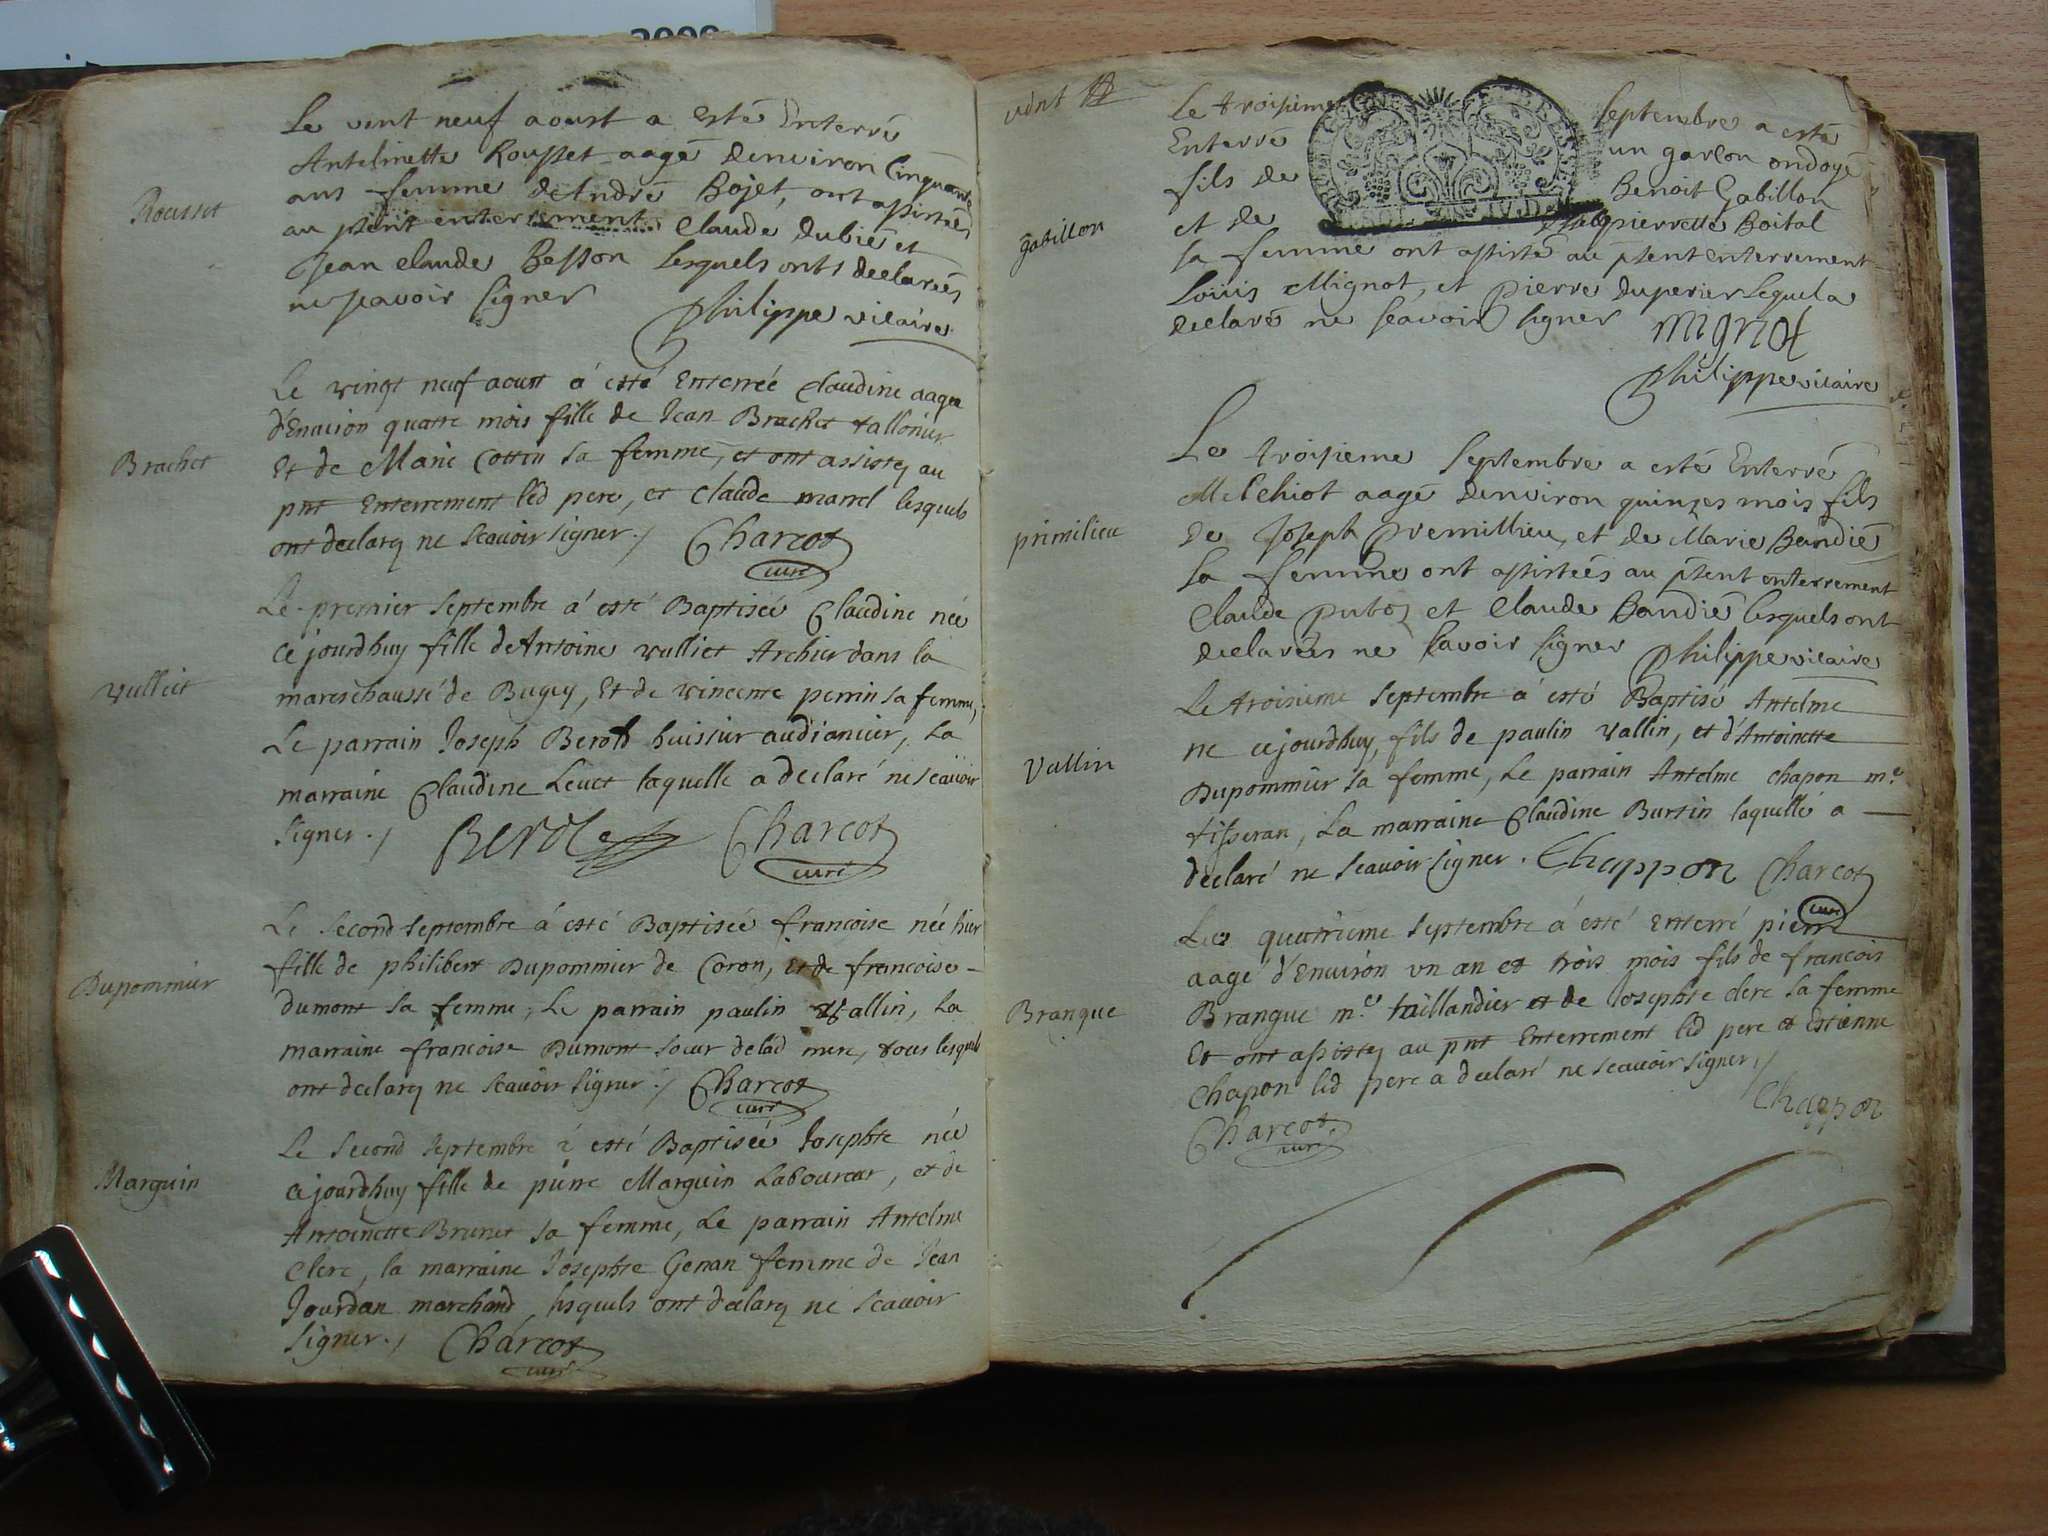 Rousset
Le vint neuf aoust a esté Enterré
Antelmette Rousset aagé denviron Cinquante
ans femme de André Bojet, ont assistées
au pñt enterrement Claude Dubié et
Jean Claude Besson lesquels onts declarées
ne scavoir signer Philippe vicaire
Brachet
Le vingt neuf aoust á esté Enterrée Claudine aagée
d'Enuiron quatre mois fille de Jean Brachet
Et de Marie Cottin sa femme, et ont assistez au
pnt Enterrement led pere, et Claude marrel lesquels
ont declarez ne Scauoir signer ./ Charcot
curé
Vulliet
Le premier Septembre á esté Baptisée Claudine née
cejourdhuy fille de Antoine vulliet Archier dans la
mareschaussé de Bugey, Et de vincente perrin sa femme,
Le parrain Joseph Berod huissier audiancier, La
marraine Claudine Levet laquelle a declaré ne scauoir
signer ./ Charcot
curé
Dupommier
Le Second Septembre á esté Baptisée francoise née hier
fille de philibert Dupommier de Coron, Et de francoise
dumont sa femme, Le parrain paulin Vallin, La
marraine francoise Dumont soeur delad mere, tous lesquels
ont declarez ne scauoir signer ./ Charcot
curé
Marguin
Le Second septembre á esté Baptisée Josephte née
cejourdhuy fille de pierre Marguin Laboureur, et de
Antoinette Brunet sa femme, Le parrain Antelme
Clerc, la marraine Josephte Genan femme de Jean
Jourdan marchand, lesquels ont declarez ne scauoir
signer ./ Charcot
curé
vint
gabillon
Le troisieme Septembre a esté
Enterré un garcon ondoyé
fils de Benoit Gabillon
et de pierrette Boital
sa femme ont assisté au pñt enterrement
Loüis Mignot, et Pierre Duperier Lequel a
declaré ne scavoir signer mignot
Philippe vicaire
primilieu
Le troisieme Septembre a esté Enterré
Melchiot aagé denviron quinzes mois fils
de Joseph Premillieu, et de Marie Bandié
sa femme ont assistées au pñt enterrement
Claude et Claude Bandié lesquels ont
declarées ne savoir signer Philippe vicaire
Vallin
Le troisieme septembre á esté Baptisé Antelme
ne cejourdhuy, fils de paulin Vallin, et d'Antoinette
Dupommier sa femme, Le parrain Antelme Chapon me
tisseran, La marraine Claudine Burtin laquelle a
declaré ne scauoir signer . Chappon Charcot
curé
Brangue
Le quatrieme septembre á esté Enterré pierre
aagé d'Enuiron un an et trois mois fils de francois
Brangue me taillandier et de Josephte clerc sa femme
Et ont assistez au pnt Enterrement led pere et Estienne
Chapon led pere a declaré ne scauoir signer ./
Chappon
Charcot
curé